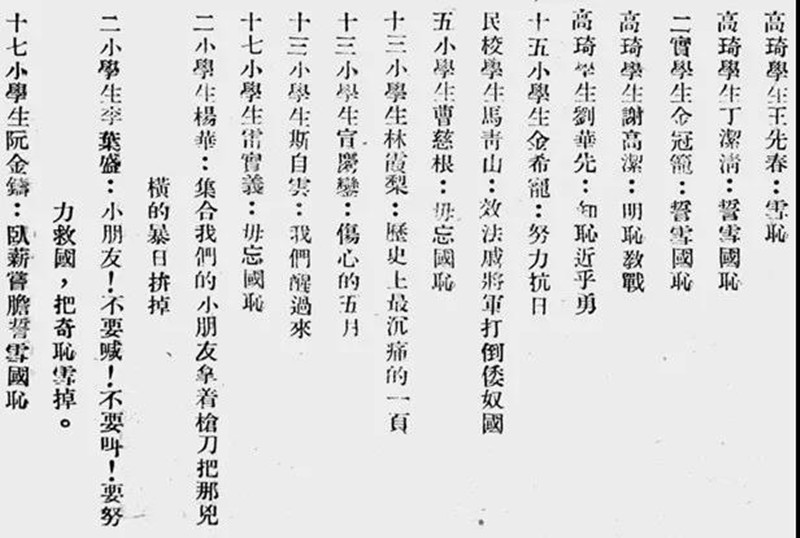 高琦學生王先春：雪恥
高琦學生丁潔淸：誓雪國恥
二實學生金冠寵：誓雪國恥
高琦學生謝高潔：明恥敎戰
高琦學生劉華先：知恥近乎勇
十五小學生金希寵：努力抗日
民校學生馬靑山：效法戚將軍打倒倭奴國
五小學生曹慈根：毋忘國恥
十三小學生林霞梨：歷史上最沉痛的一頁
十三小學生宣慶鑾：傷心的五月
十三小學生斯自雲：我們醒過來
十七小學生雷實義：毋忘國恥
二小學生楊華：集合我們的小朋友拿着槍刀把那兇
橫的暴日拚掉
二小學生李葉盛：小朋友！不要喊！不要叫！要努
力救國，把奇恥雪掉。
十七小學生阮金鑄：臥薪嘗膽誓雪國恥